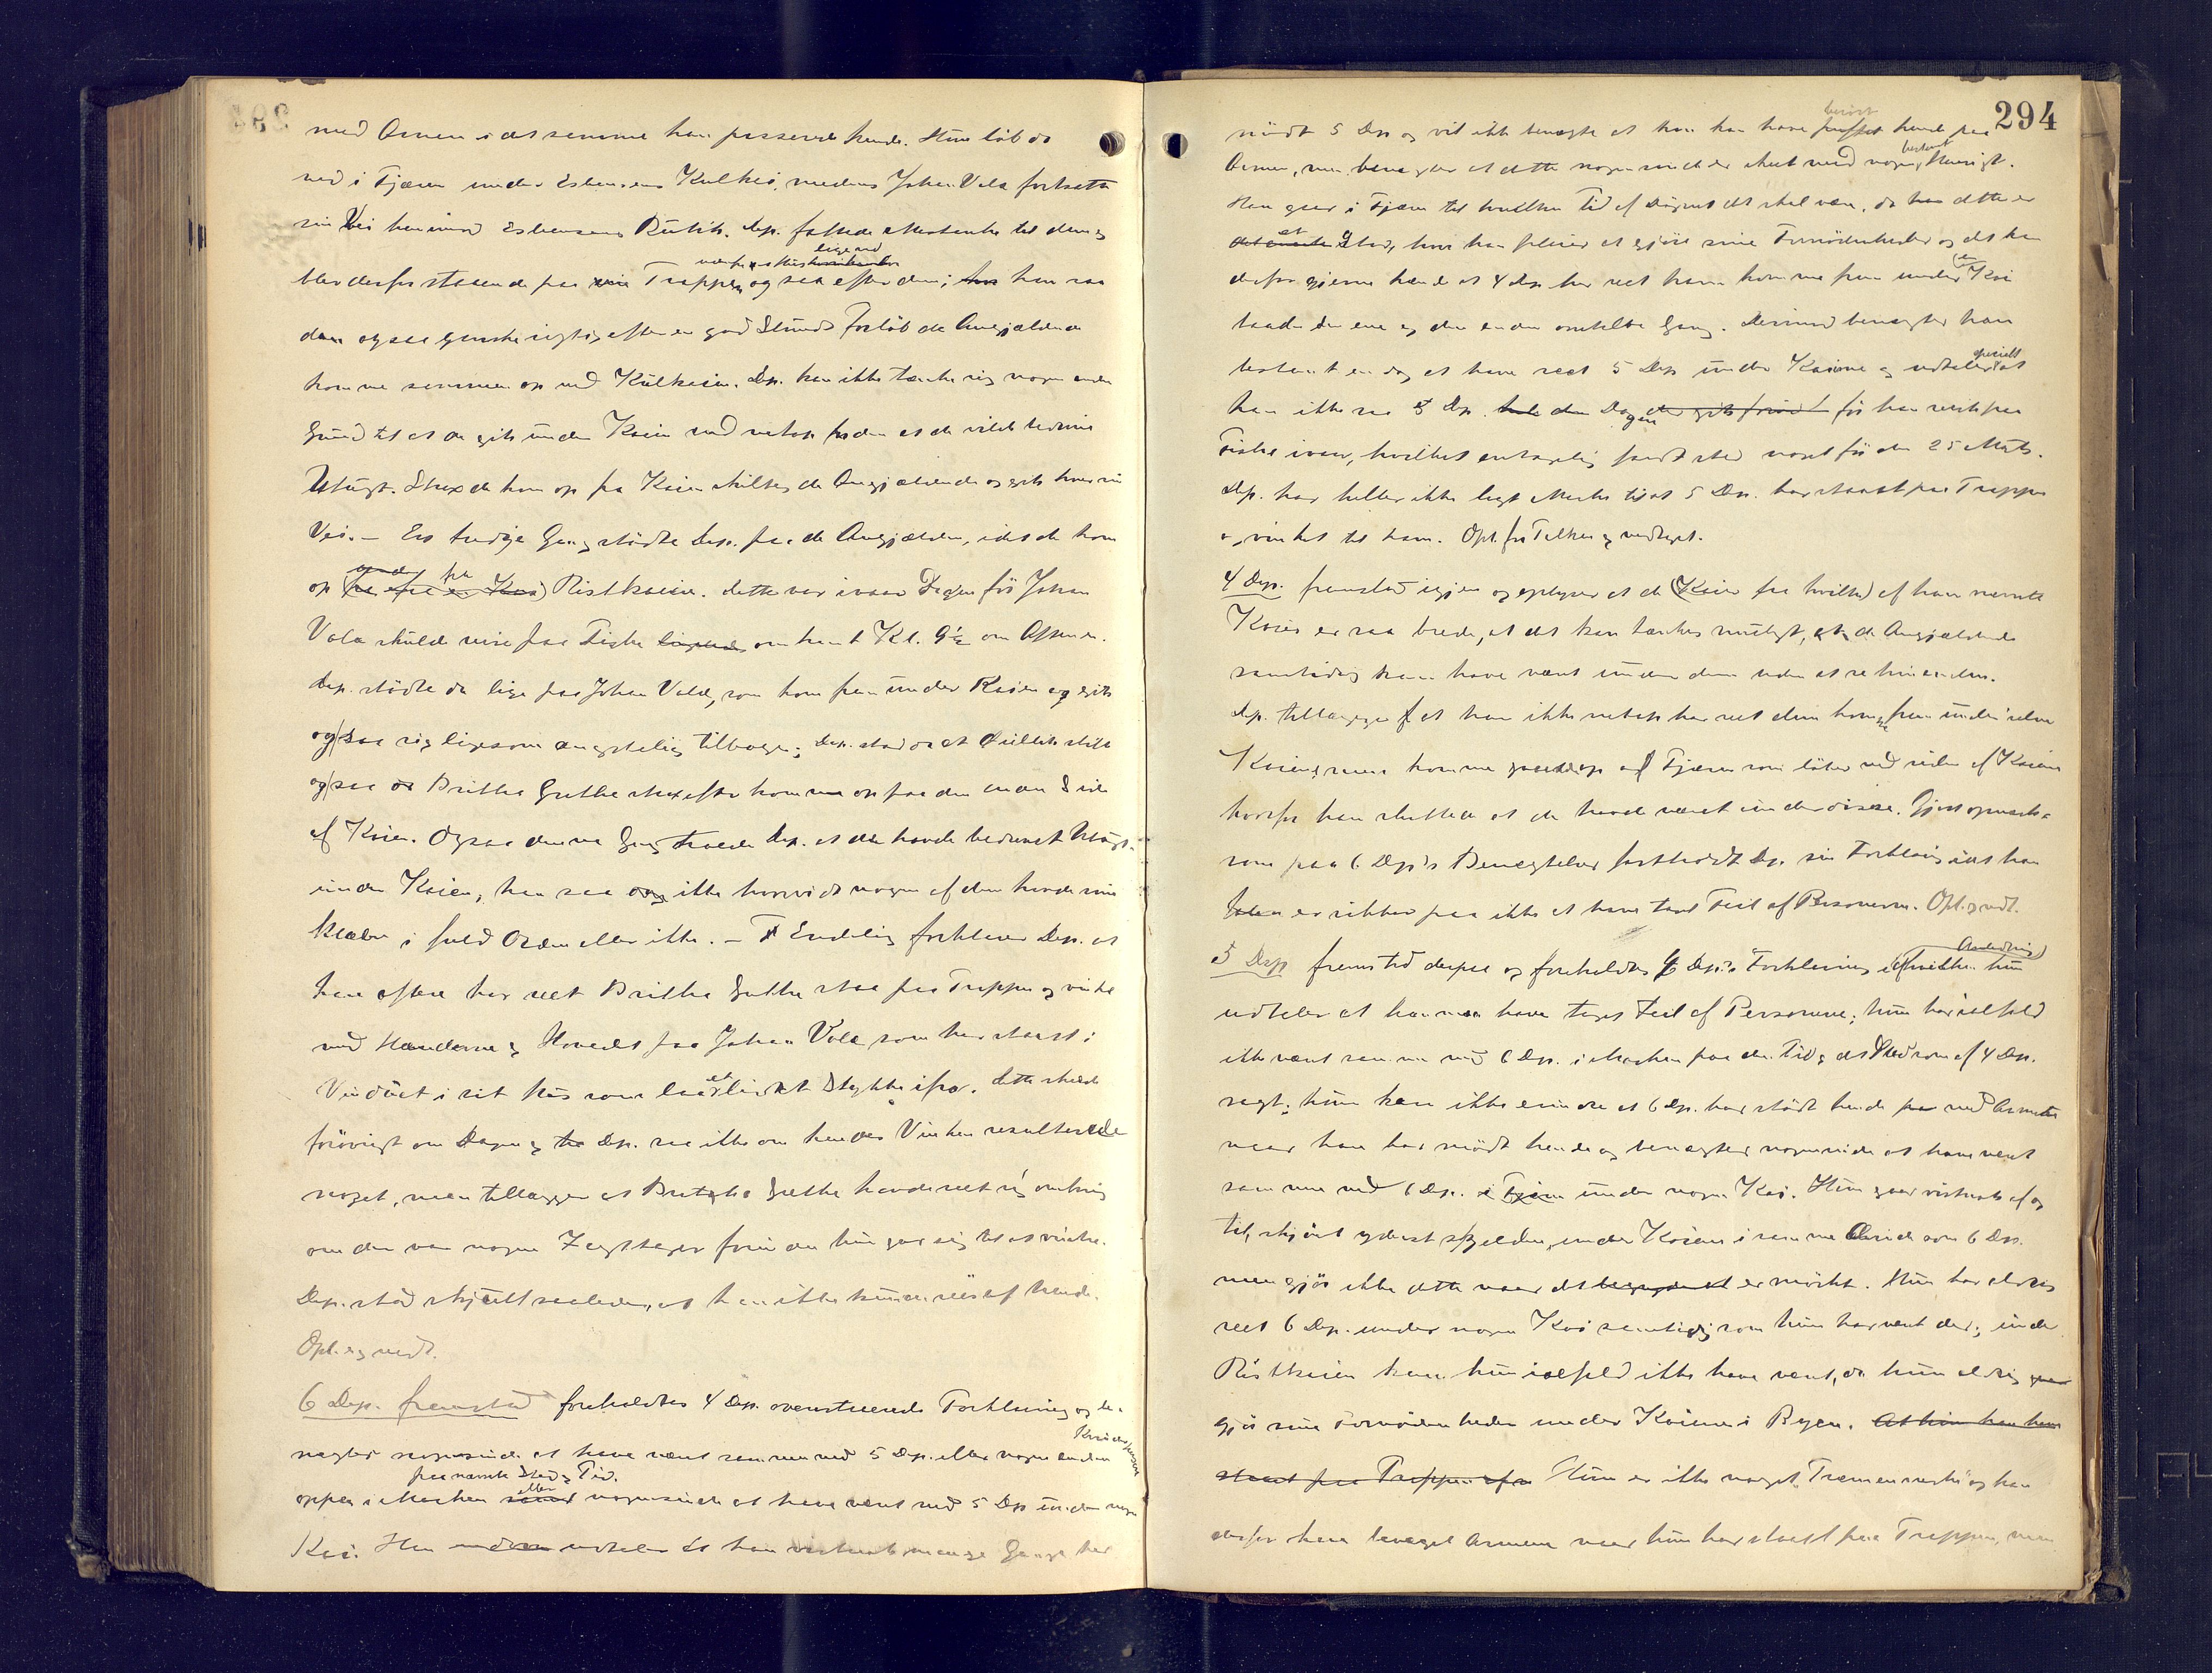 med Armen i det samme han passerede hende. Hun løb da
ned i Fjæren under Esbensens Kulkai, medens Johan Vala fortsatte
sin Vei henimod Esbensens Butik. Dep. fattede Mistanke til dem og
ligeoverfor
blev derfor staaende paa Trappen og saa efter dem; han saa
da ogsaa ganske rigtig efter en god Stunds Forløb de Angjældende
komme sammen op ved Kulkaien. Dep. kan ikke tænke sig nogen anden
Grund til at de gik under Kaien end netop for den at de vilde bedrive
Utugt. Strax de kom op fra Kaien skiltes de Angjældende og gik hver sin
Vei. — En tredje Gang stødte Dep. paa de Angjældende, idet de kom
op fra Ristkaien. Dette var ivaar Dagen før Johan
Vala skulde reise paa Fiske omtrent Kl. 9½ om Aftenen.
Dep. stødte da lige paa Johan Vala, som kom frem under Kaien og gik
og saa sig ligesom ængstelig tilbage; Dep. stod da et Øieblik stille
og saa Britha Grethe strax efter komme op paa den anden Side
af Kaien. Ogsaa denne Gang troede Dep. at de havde bedrevet Utugt
under Kaien, han saa dog ikke hvorvidt nogen af dem havde sine
Klæder i fuld Orden eller ikke. — Endelig forklarer Dep. at
han oftere har seet Britha Grethe staa paa Trappen og vinke
med Hænderne og Hovedet paa Johan Vala som har staaet i
Vinduet i sit Hus som laa et lidet Stykke ifra. Dette skede
forøvrigt om Dagen og Dep. saa ikke om hendes Vinken resulterede
noget, men tillægger at Britha Grethe havde seet sig omkring
om der var nogen Iagttager forinden hun gav sig til at vinke.
Dep. stod skjult saaledes, at han ikke kunde sees af hende.
Opl. og vedt.
6 Dep. fremstod foreholdtes 4 Dep. ovenstaaende Forklaring og be-
Kvindesperson
nægter nogensinde at have været sammen med 5 Dep. eller nogen anden
paa nævnte Sted og Tid.
oppe i Marken eller nogensinde at have været med 5 Dep. under nogen
Kai. Han udtaler at han vistnok mange Gange har
294
berørt
mødt 5 Dep. og vil ikke benægte at han kan have puffet hende paa
bestemt
Armen, men benægter at dette nogensinde er skeet med nogen Hensigt.
Han gaar i Fjæren til hvilken Tid af Døgnet det skal være, da dette er
et Sted, hvor han pleier at gjøre sine Fornødenheder og det kan
derfor gjerne hænde at 4 Dep. har seet ham komme frem under en Kai
baade den ene og den anden omtalte Gang. Derimod benægter han
specielt
bestemt endog at have seet 5 Dep. under Kaierne og udtaler at
han ikke saa 5 Dep. Dagen før han reiste paa
Fiske ivaar, hvilket antagelig fandt sted noget før den 25 Marts.
Dep. har heller ikke lagt Mærke til at 5 Dep. har staaet paa Trappen
og vinket til ham. Opl. for Tolken og vedtaget.
4 Dep. fremstod igjen og oplyser at de af ham nævnte
Kaier er saa brede, at det kan tænkes muligt, at de Angjældende
samtidig kan have været under dem uden at se hinanden.
Dep. tillægger at han ikke netop har seet dem komme frem under selve
Kaierne men komme gaaende op af Fjæren ved siden af Kaierne
hvorfor han sluttede at de havde været under disse. Gjort opmærk-
som paa 6 Dep's Benægtelse fastholdt Dep. sin Forklaring idet han
er sikker paa ikke at have taget Feil af Personerne. Opl. og vedt.
5 Dep. fremstod derpaa og foreholdtes 4 Dep.'s Forklaring i hvilken Anledning hun
udtaler at han maa have taget Feil af Personerne; hun har ialfald
ikke været sammen med 6 Dep. i Marken paa den Tid og det Sted som af 4 Dep.
sagt; hun kan ikke erindre at 6 Dep. har stødt hende med Armen
naar han har mødt hende og benægter nogensinde at have været
sammen med 6 Dep. under nogen Kai. Hun gaar vistnok af og
til, skjønt yderst sjelden, under Kaien i samme Ærinde som 6 Dep.
men gjør ikke dette naar det er mørkt. Hun har aldrig
seet 6 Dep. under nogen Kai samtidig som hun har været der; under
Ristkaien kan hun ialfald ikke have været, da hun aldrig
gjør sine Fornødenheder under Kaierne i Byen. At hun kan have
staaet paa Trappen Hun er ikke noget Træmenneske og kan
derfor have bevæget Armene naar hun har staaet paa Trappen, men